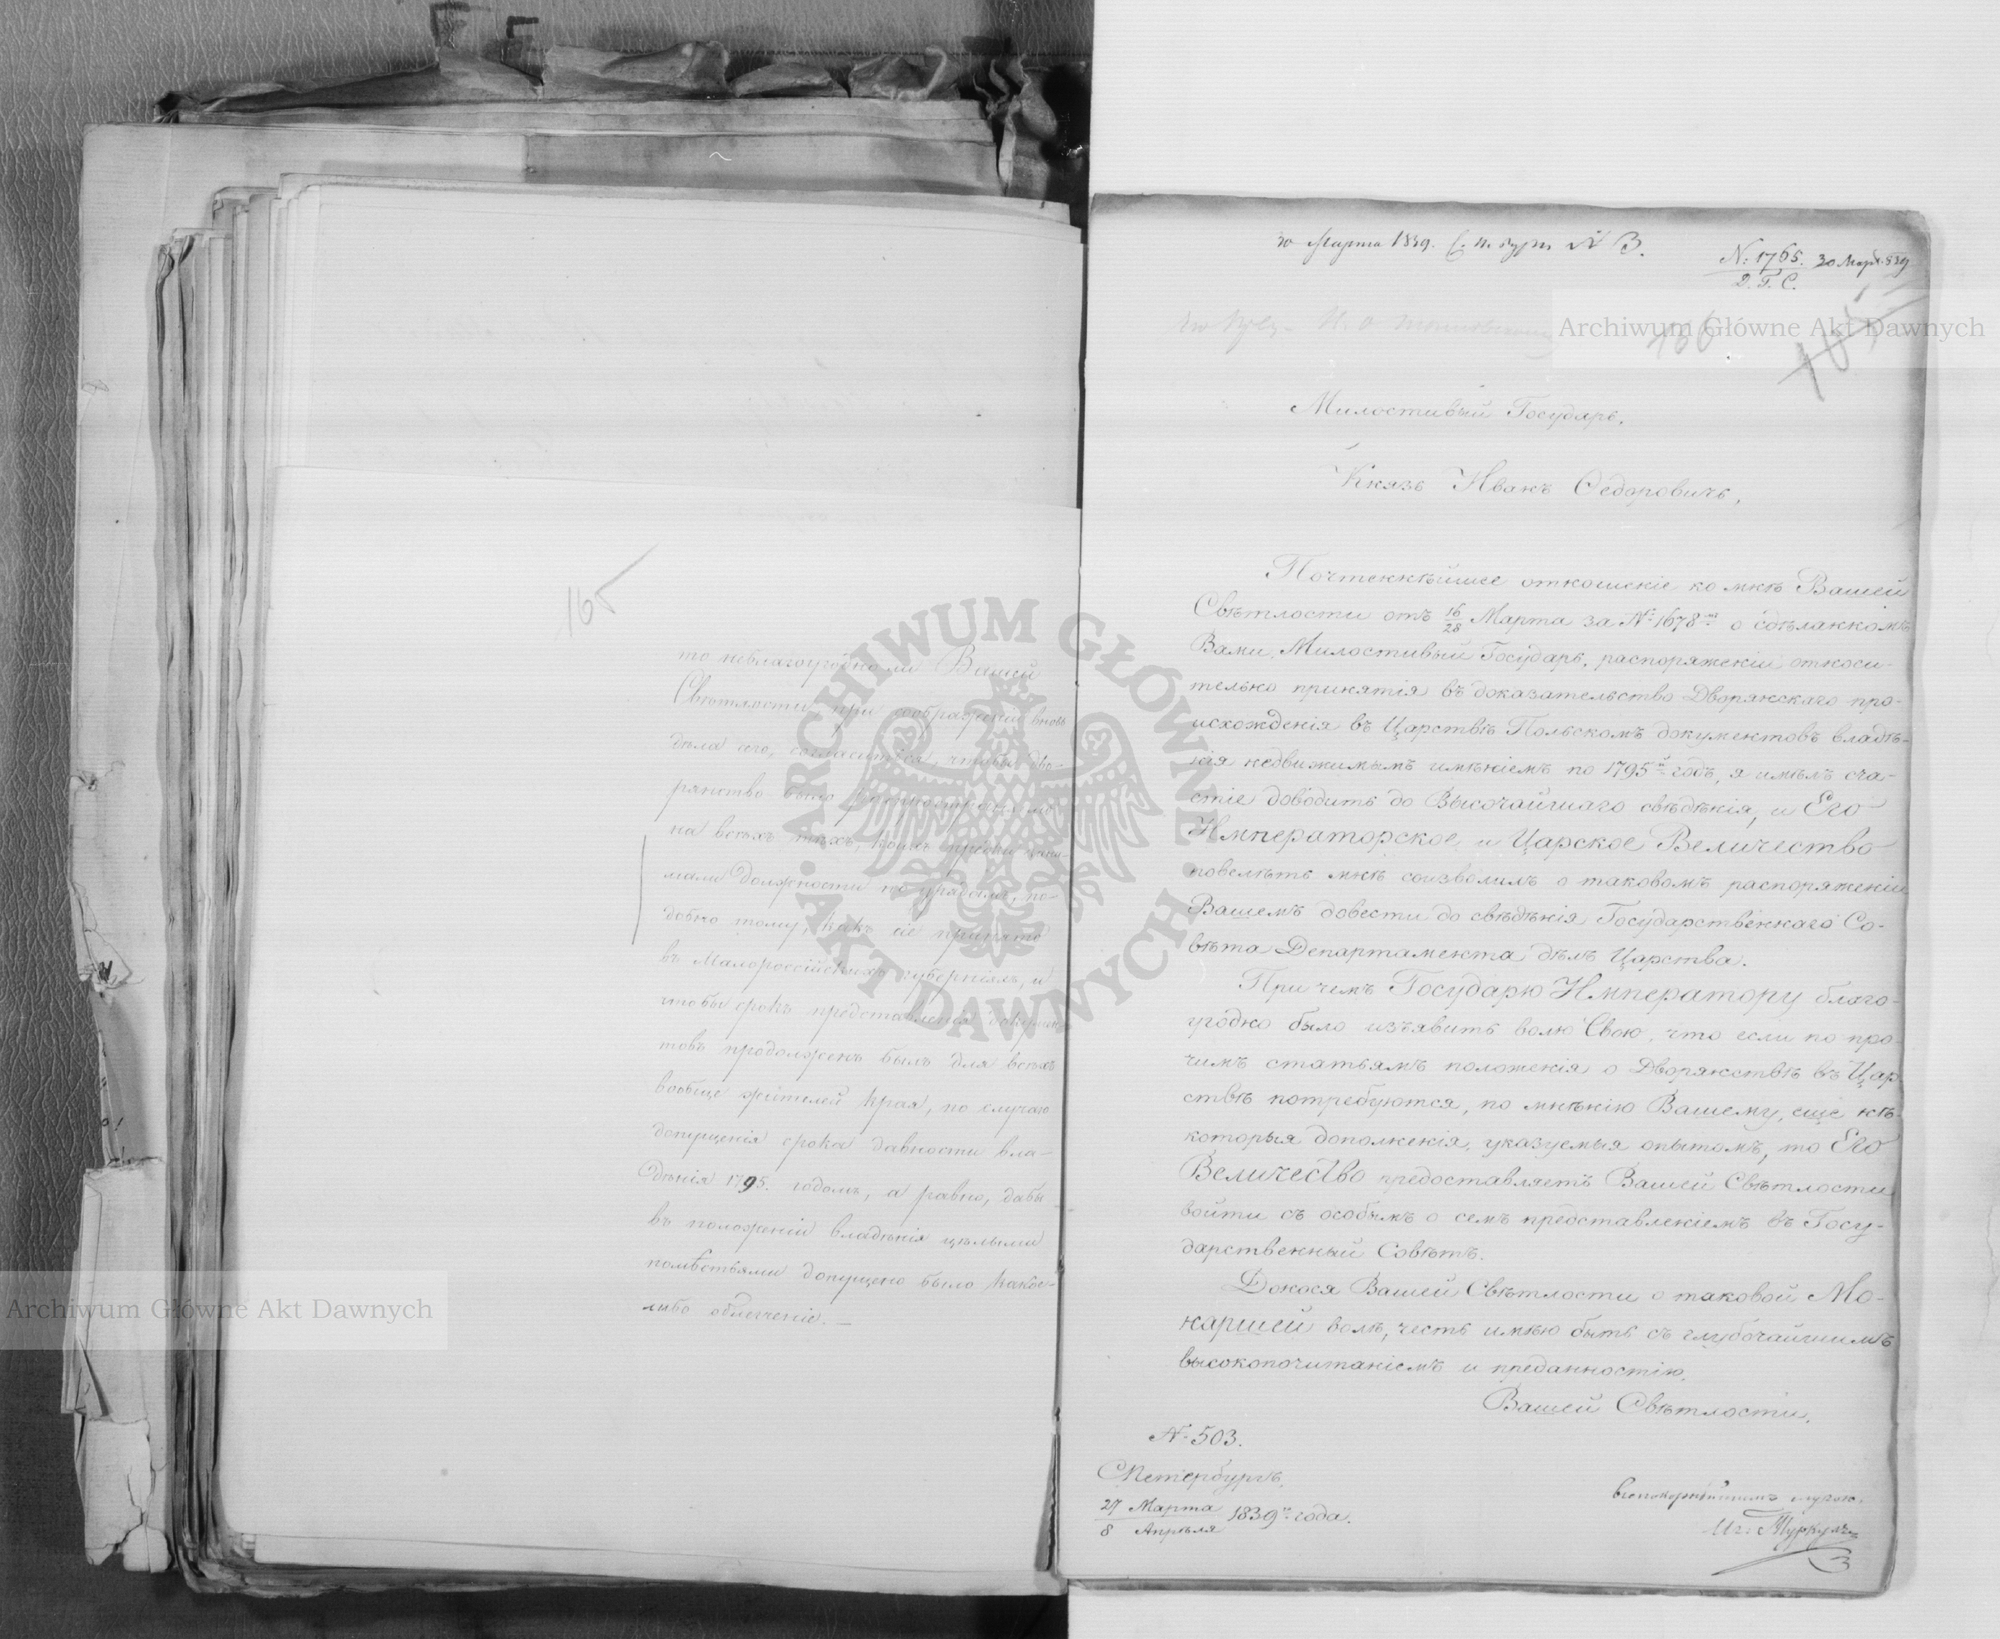 165
то неблагоугодно ли Вашей
Свѣтлости, при соображеніи вновь
дѣла сего, согласиться, чтобы дво-
рянство было распространяемо
на всѣхъ тѣхъ, коихъ предки зани-
мали должности по урядамъ, по-
добно тому, какъ сіе принято
въ Малороссійскихъ губерніяхъ, и
чтобы срокъ представленія докумен-
товъ продолженъ былъ для всѣхъ
вообще жителей края, по случаю
допущенія срока давности вла-
дѣнія 1795. годомъ, а равно, дабы
въ положеніи владѣнія цѣлыми
помѣстьями допущено было какое-
либо облегченіе. —
30 Марта 1839. № 3.
N: 1765. 30 Март. 839
Д. Г. С.
166
165
Милостивый Государь,
Князь Иванъ Ѳедоровичь,
Почтеннѣйшее отношеніе ко мнѣ Вашей
Свѣтлости отъ 16/28 Марта за № 1678 о сдѣланномъ
Вами, Милостивый Государь, распоряженіи относи-
тельно принятія въ доказательство Дворянскаго про-
исхожденія въ Царствѣ Польскомъ документовъ владѣ-
нія недвижимымъ имѣніемъ по 1795й годъ, я имѣлъ сча-
стіе доводить до Высочайшаго свѣдѣнія, и Его
Императорское и Царское Величество
повелѣть мнѣ соизволилъ о таковомъ распоряженіи
Вашемъ довести до свѣдѣнія Государственнаго Со-
вѣта Департамента дѣлъ Царства.
При чемъ Государю Императору благо-
угодно было изъявить волю Свою, что если по про-
чимъ статьямъ положенія о Дворянствѣ въ Цар-
ствѣ потребуются, по мнѣнію Вашему, еще нѣ-
которыя дополненія, указуемыя опытомъ, то Его
Величество предоставляетъ Вашей Свѣтлости
войти съ особымъ о семъ представленіемъ въ Госу-
дарственный Совѣтъ.
Донося Вашей Свѣтлости о таковой Мо-
наршей волѣ, честь имѣю быть съ глубочайшимъ
высокопочитаніемъ и преданностію,
Вашей Свѣтлости,
№ 503.
СПетербургъ,
27 Марта / 8 Апрѣля 1839го года.
всепокорнѣйшимъ слугою
Иг: Туркулъ
Archiwum Główne Akt Dawnych
Archiwum Główne Akt Dawnych
ARCHIWUM GŁÓWNE AKT DAWNYCH